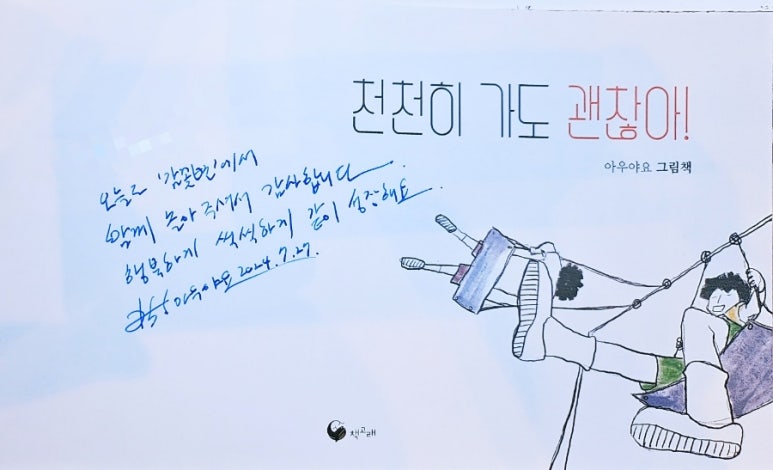 천천히 가도 괜찮아!
아우야요 그림책
오늘은 '감꽃면'에서
함께 놀아 주셔서 감사합니다.
행복하게 씩씩하게 같이 성장해요.
아우야요 2024.7.27.
책고래